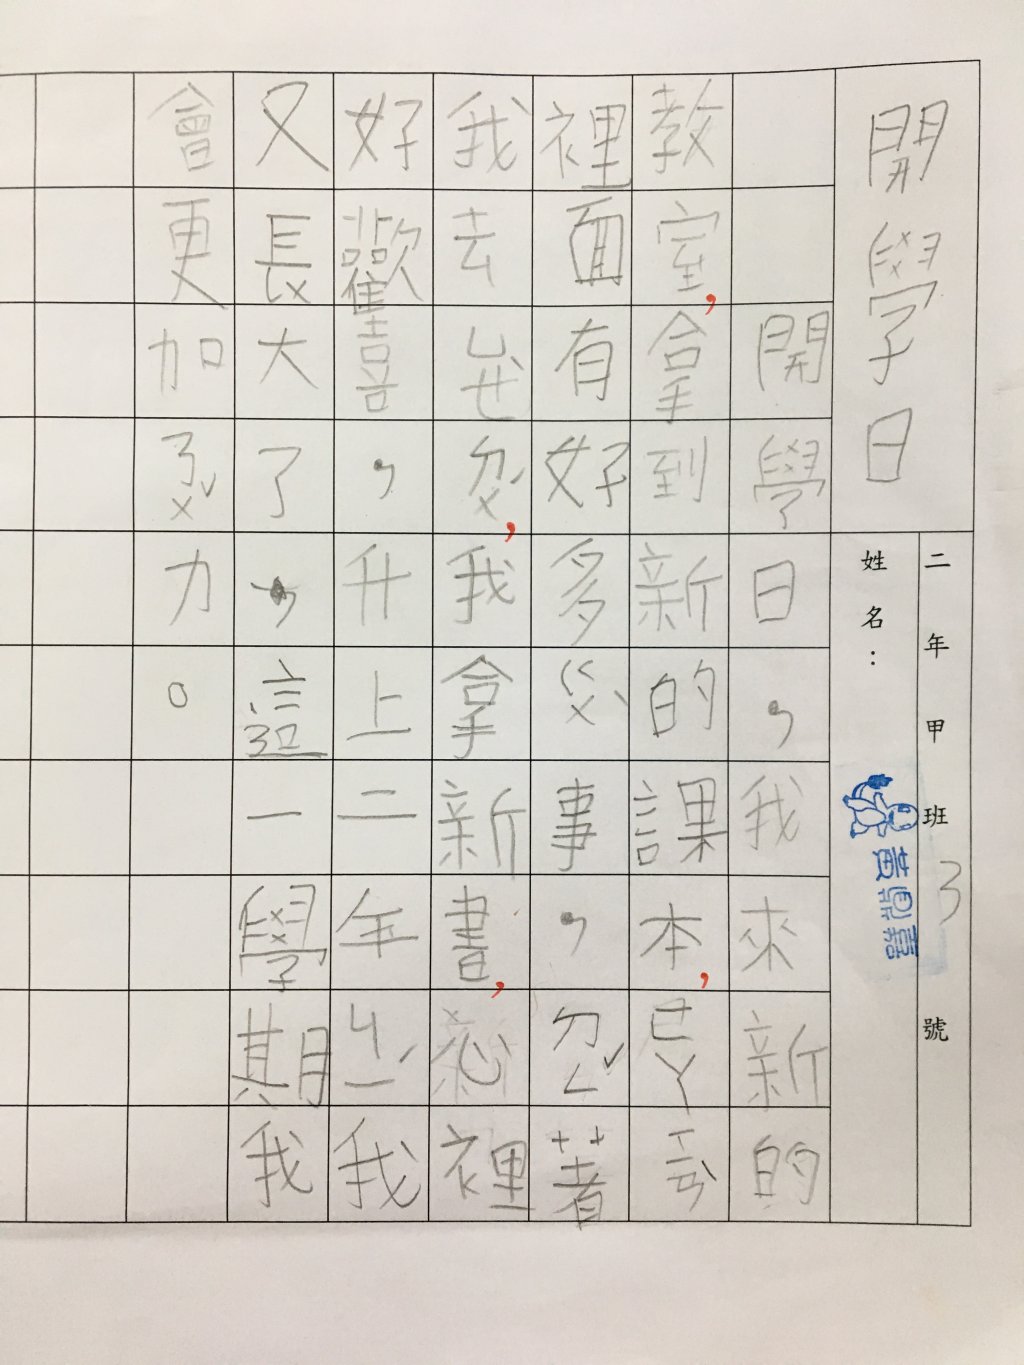 開學日
二年甲班3號
姓名:黃鼎嘉
開學日,我來新的
教室,拿到新的課本,
裡面有好多ㄍㄨˋ事,ㄉㄥˇ著
我去ㄩㄝˋㄉㄨˊ,我拿新書,心裡
好歡喜,升上二年ㄐㄧˊ我
又長大了,這一學期我
會更加ㄋㄨˇ力。